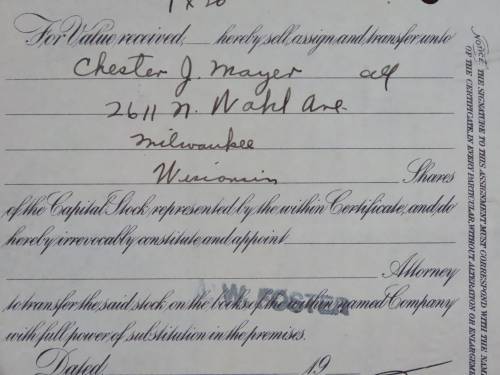 For Value received, ___ hereby sell, assign and transfer unto
Chester J. Mayer all
2611 N. Wahl Ave.
Milwaukee
Wisconsin Shares
of the Capital Stock represented by the within Certificate, and do
hereby irrevocably constitute and appoint
Attorney
to transfer the said stock on the books of the within named Company
W. FOSTER
with full power of substitution in the premises.
Dated 19
NOTICE. THE SIGNATURE TO THIS ASSIGNMENT MUST CORRESPOND WITH THE NAME
OF THE CERTIFICATE, IN EVERY PARTICULAR, WITHOUT ALTERATION OR ENLARGEME